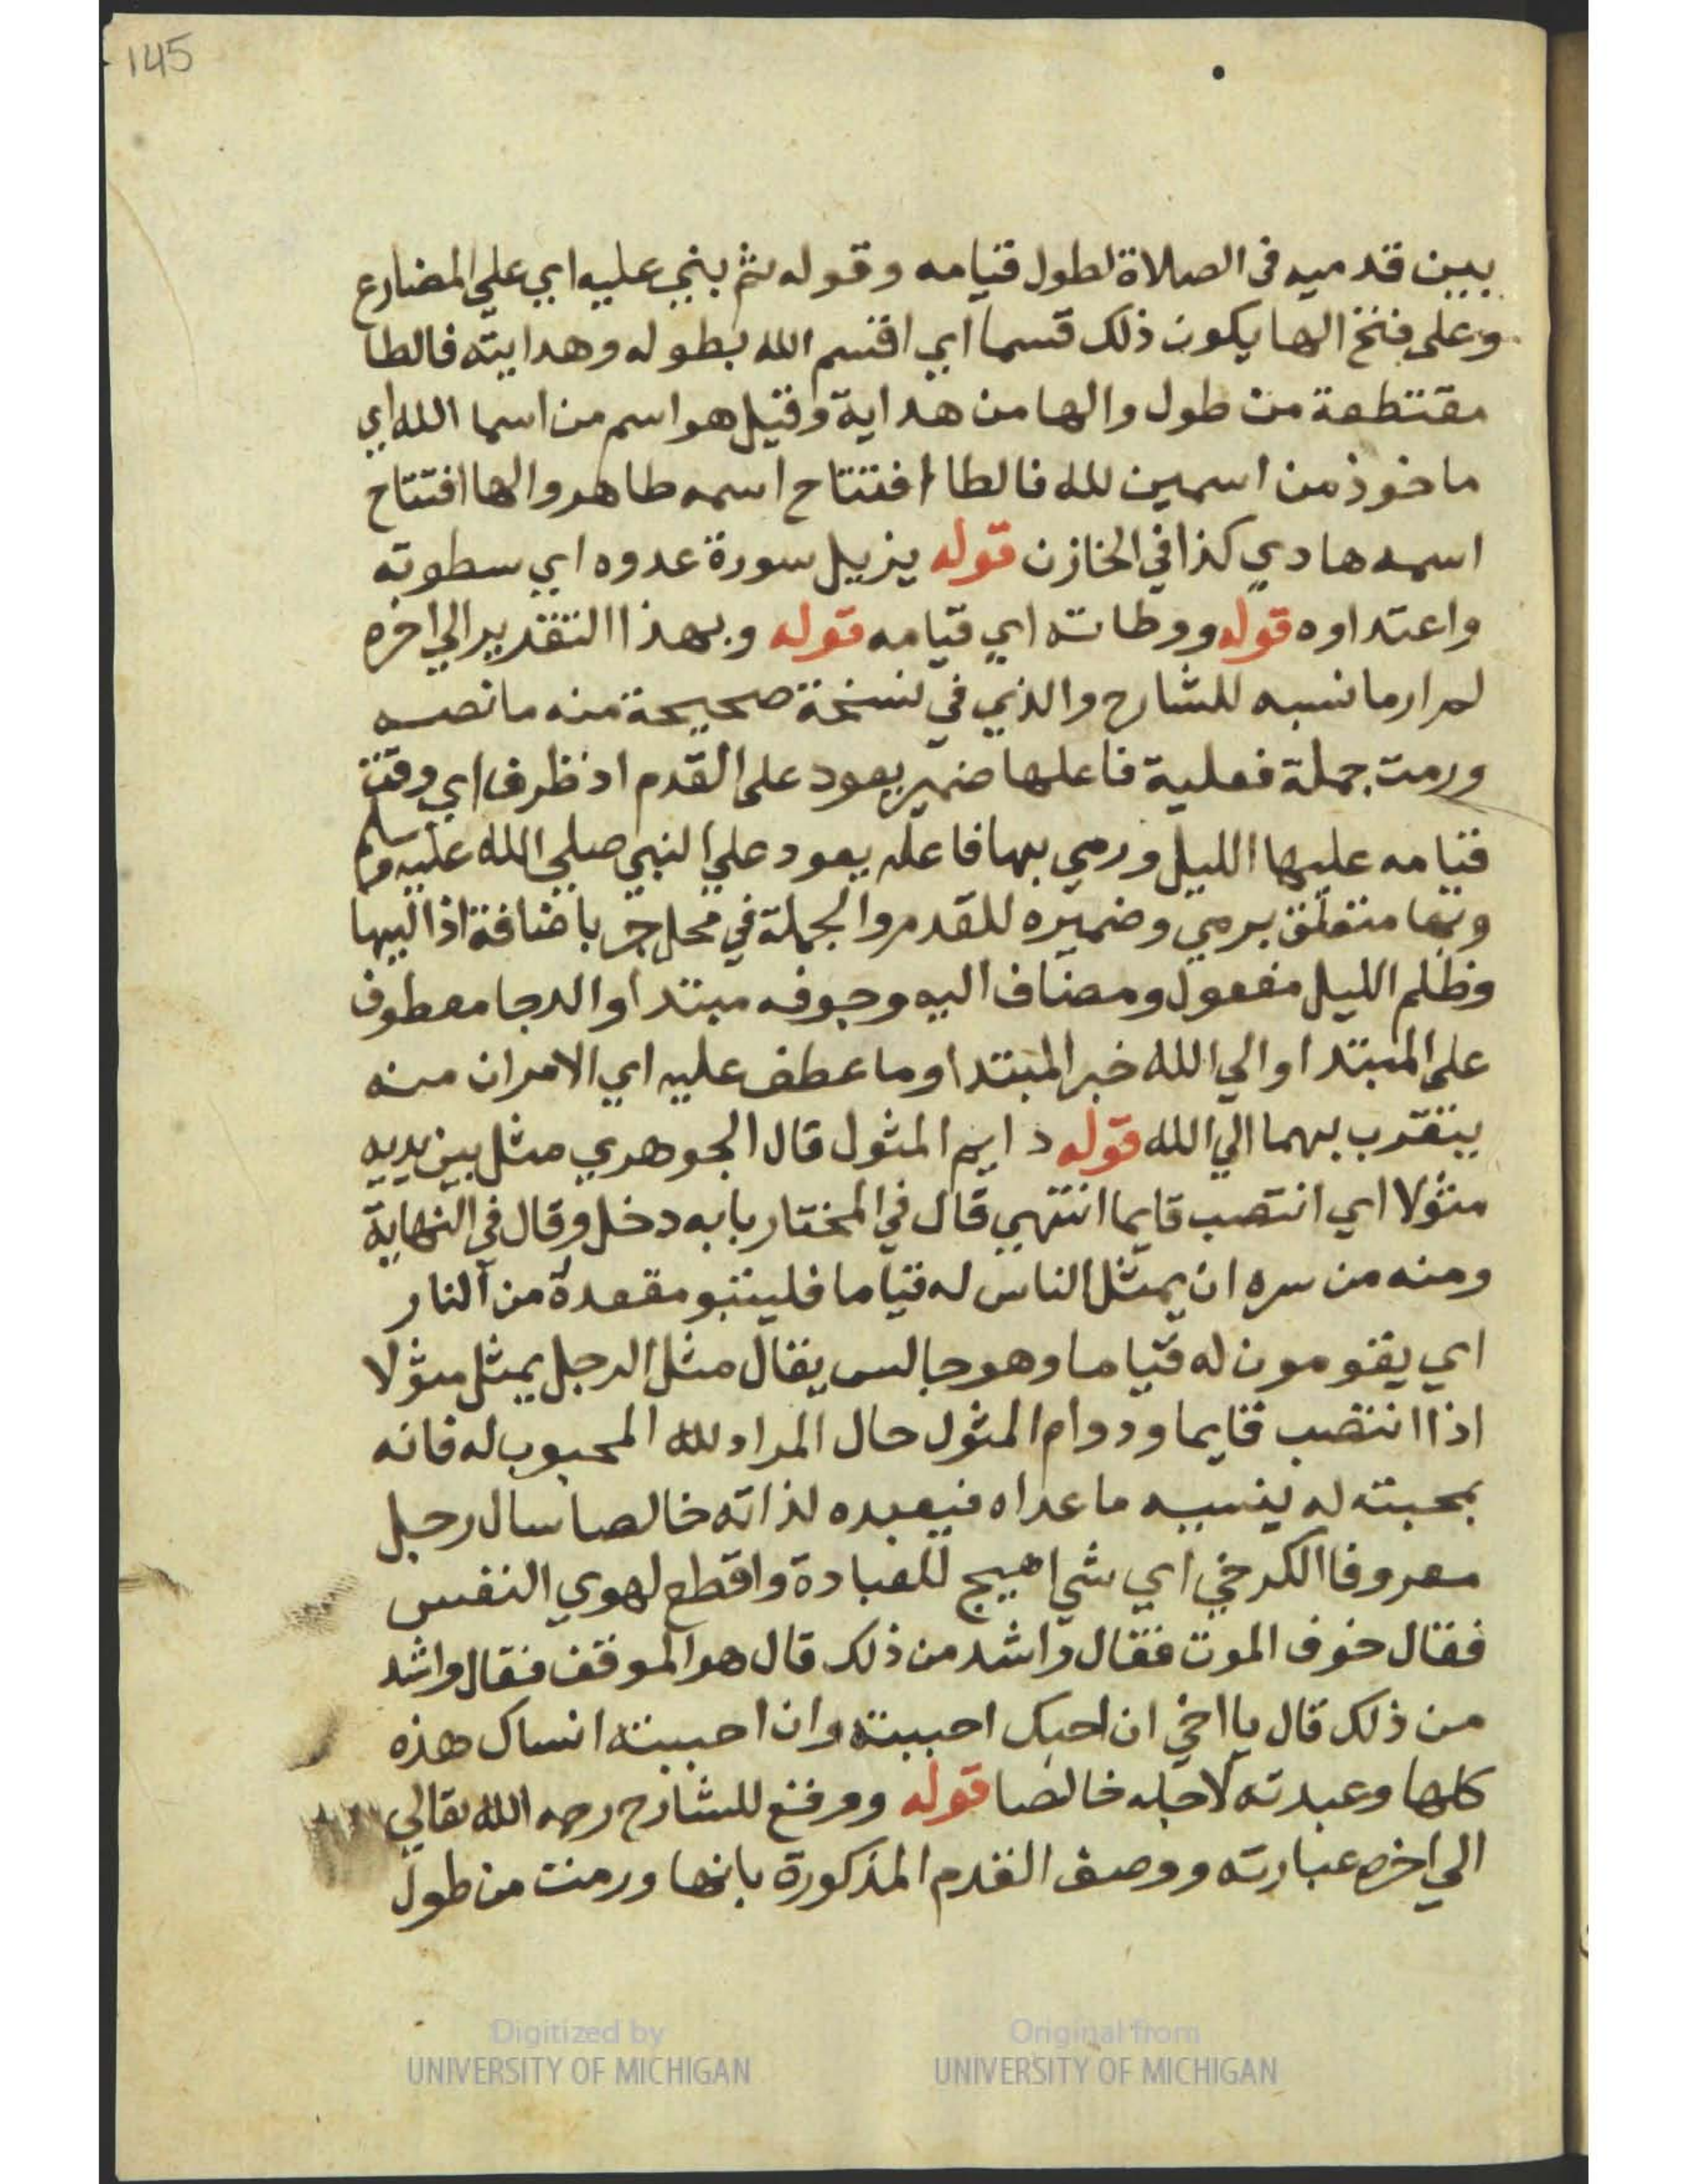 145
بين قدميه في الصلاة لطول قيامه وقوله ثم بني عليه اي علي المضارع
وعلى فتح الها يكون ذلك قسما اي اقسم الله بطوله وهدايته فالطا
مقتطعة من طول والها من هداية وقيل هو اسم من اسما الله اي
ماخوذ من اسمين لله فالطا افتتاح اسمه طاهر والها افتتاح
اسمه هادي كذا في الخازن قوله يزيل سورة عدوه اي سطوته
واعتداوه قوله ووطاته اي قيامه قوله وبهذا التقدير الي اخره
لم ار ما نسبه للشارح والذي في نسخة صحيحة منه ما نصه
ورمت جملة فعلية فاعلها ضمير يعود على القدم اذ ظرف اي وقت
قيامه عليها الليل ورمي بها فاعله يعود علي النبي صلي الله عليه وسلم
وبها متعلق برمي وضميره للقدم والجملة في محل جر باضافة اذ اليها
وظلم الليل مفعول ومضاف اليه وجوفه مبتدا والدجا معطوف
على المبتدا والي الله خبر المبتدا وما عطف عليه اي الامران منه
يتقرب بهما الي الله قوله دايم المثول قال الجوهري مثل بين يديه
مثولا اي انتصب قايما انتهي قال في المختار بابه دخل وقال في النهاية
ومنه من سره ان يمثل الناس له قياما فليتبو مقعدة من النار
اي يقومون له قياما وهو جالس يقال مثل الرجل يمثل مثولا
اذا انتصب قايما ودوام المثول حال المراد لله المحبوب له فانه
بمحبته له ينسيه ما عداه فيعبده لذاته خالصا سال رجل
معروفا الكرخي اي شي اهيج للعبادة واقطع لهوي النفس
فقال خوف الموت فقال واشد من ذلك قال هو الموقف فقال واشد
من ذلك قال يا اخي ان احبك احببته وان احببته انساك هذه
كلها وعبدته لاجله خالصا قوله ووقع للشارح رحمه الله تعالي
الي اخره عبارته ووصف القدم المذكورة بانها ورمت من طول
Digitized by
UNIVERSITY OF MICHIGAN
Original from
UNIVERSITY OF MICHIGAN